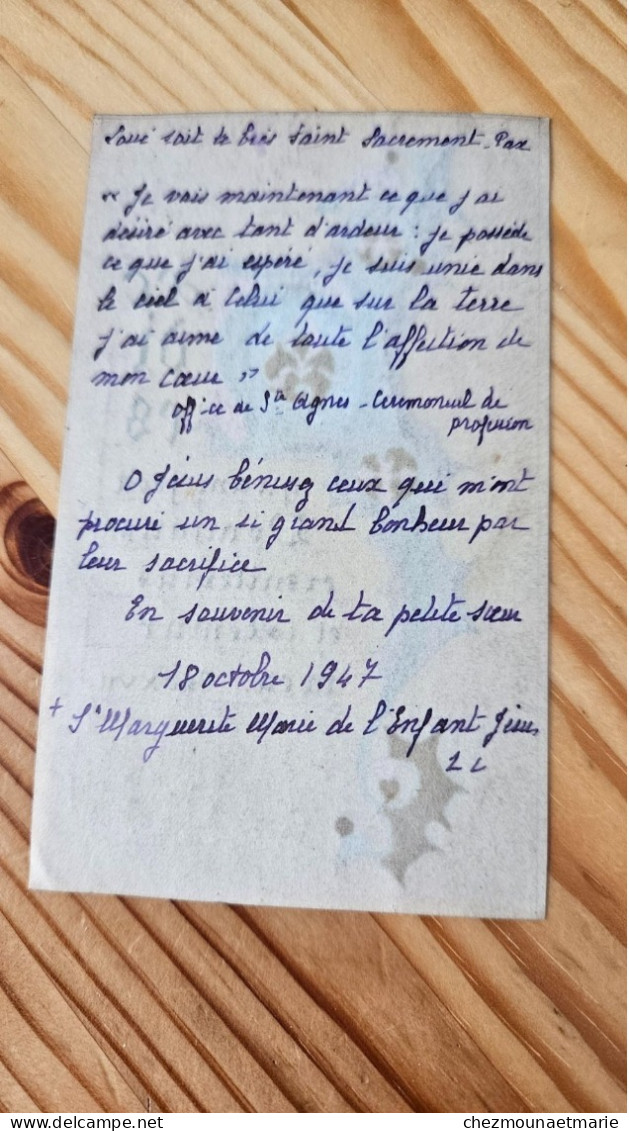 Loué soit le très Saint Sacrement. Pax
" Je vois maintenant ce que j'ai
désiré avec tant d'ardeur : je possède
ce que j'ai espéré, je suis unie dans
le ciel à Celui que sur la terre
j'ai aimé de toute l'affection de
mon cœur "
office de Ste Agnes - Ceremonial de
profession
O Jésus bénissez ceux qui m'ont
procuré un si grand bonheur par
leur sacrifice
En souvenir de ta petite sœur
18 octobre 1947
+ Sr Marguerite Marie de l'Enfant Jésus
delcampe.net
chezmounaetmarie